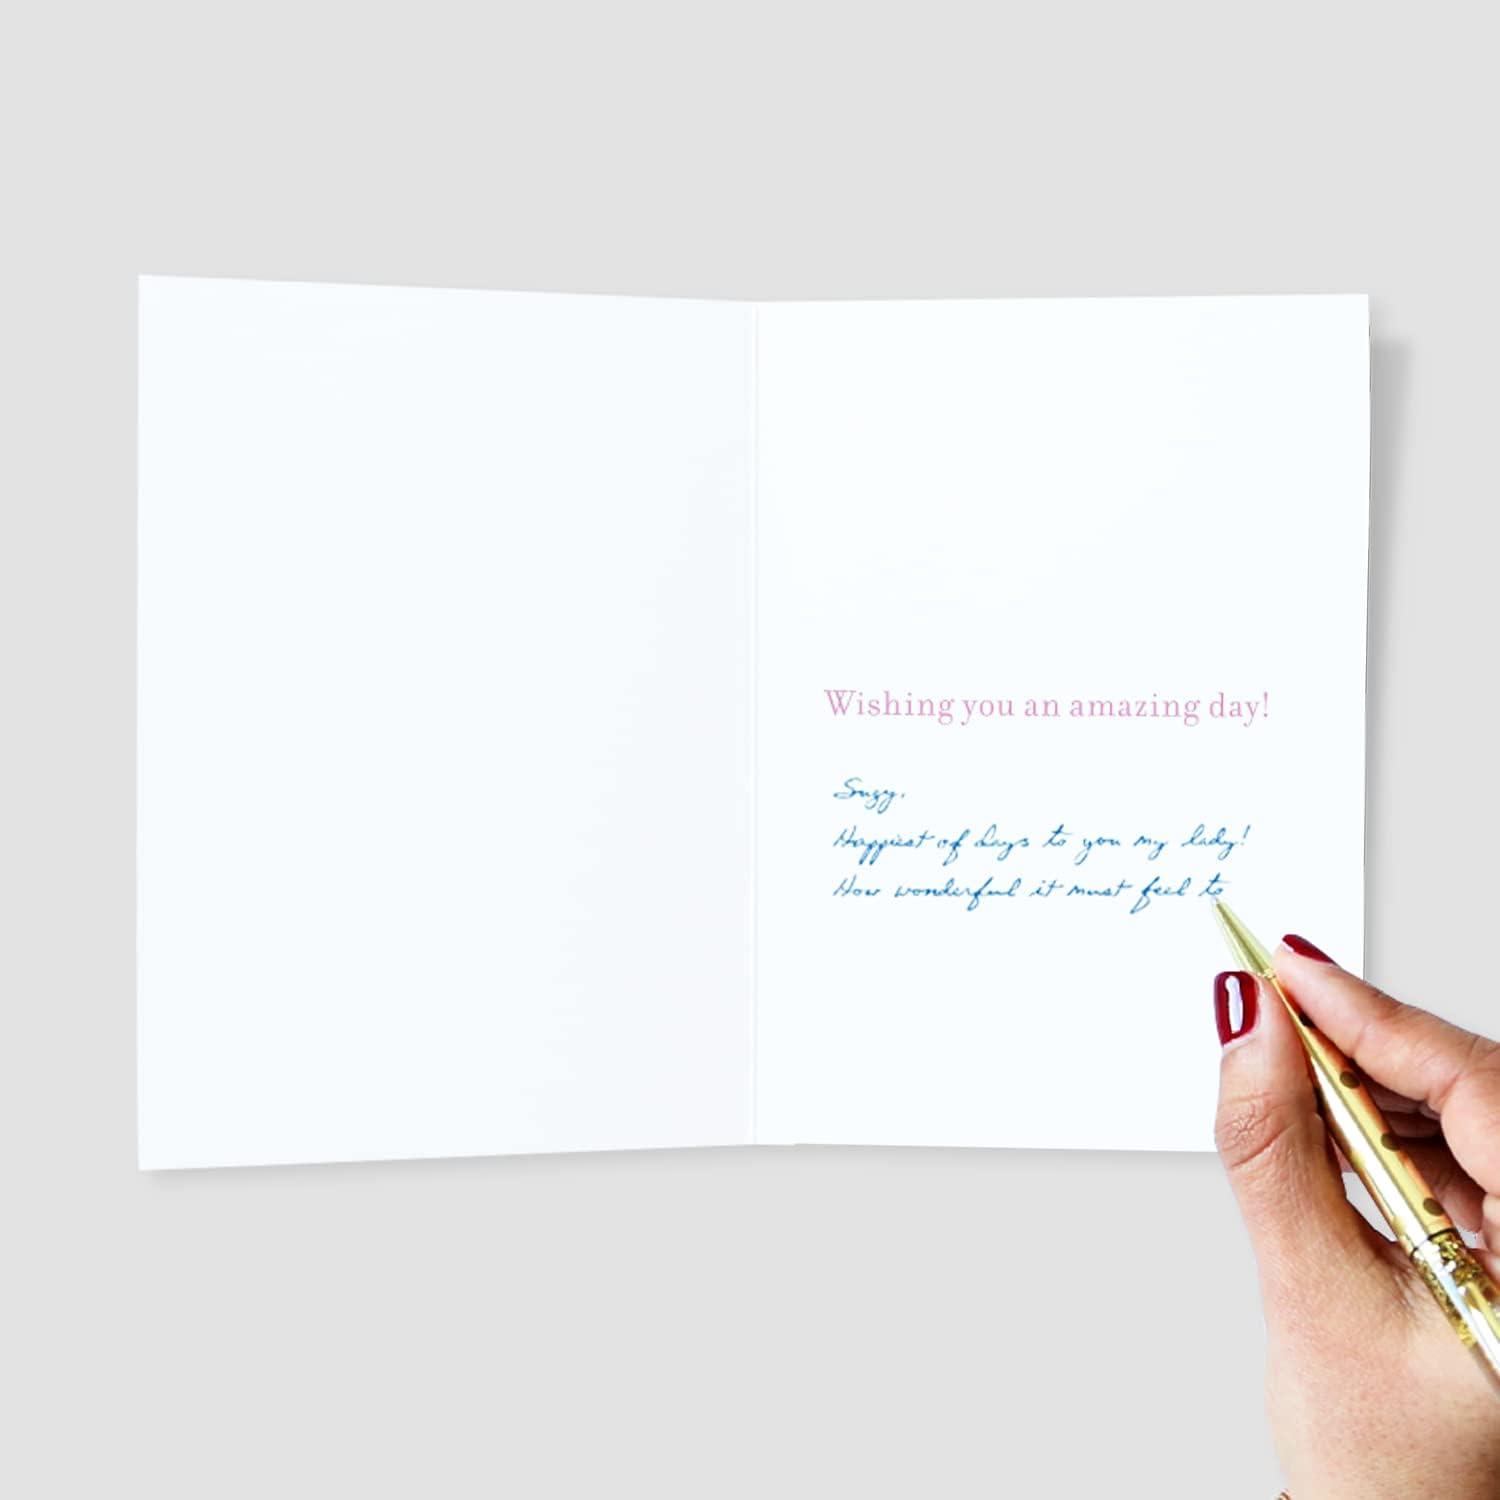 Wishing you an amazing day!
Suzy,
Happiest of days to you my lady!
How wonderful it must feel to